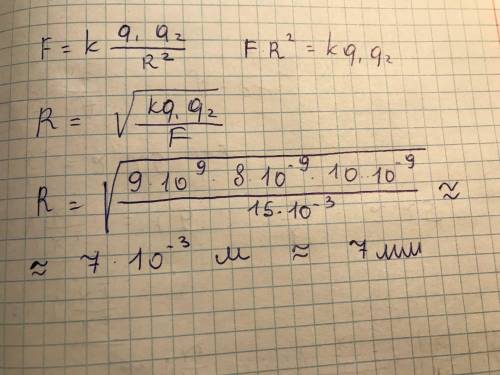 F = k q₁ q₂ / R²    F · R² = k q₁ q₂
R = √(k q₁ q₂ / F)
R = √(9 · 10⁹ · 8 · 10⁻⁹ · 10 · 10⁻⁹ / 15 · 10⁻³) ≈
≈ 7 · 10⁻³ м ≈ 7 мм